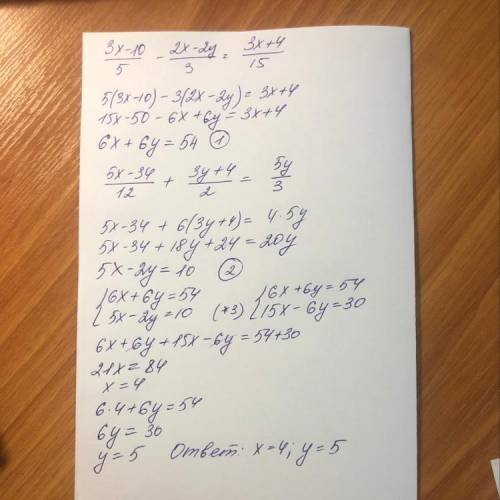 (3x-10)/5 - (2x-2y)/3 = (3x+4)/15
5(3x-10) - 3(2x-2y) = 3x+4
15x-50 - 6x+6y = 3x+4
6x+6y = 54 ①
(5x-34)/12 + (3y+4)/2 = 5y/3
5x-34 + 6(3y+4) = 4·5y
5x-34+18y+24 = 20y
5x-2y = 10 ②
{6x+6y = 54 {6x+6y = 54
{5x-2y = 10 (*3) {15x-6y = 30
6x+6y+15x-6y = 54+30
21x = 84
x = 4
6·4+6y = 54
6y = 30
y = 5 Ответ: x=4; y=5